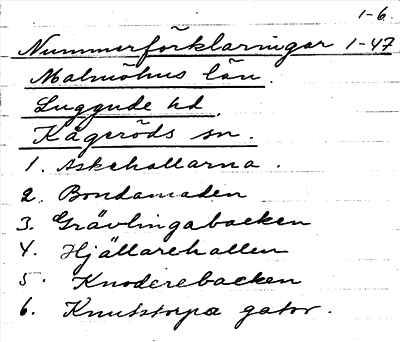 1-6.
Nummerförklaringar 1-47
Malmöhus län.
Luggude hd.
Kågeröds sn.
1. Askehallarna.
2. Bondamaden
3. Grävlingabacken
4. Hjällarehallen
5. Knoderebacken
6. Knutstorpa gator.